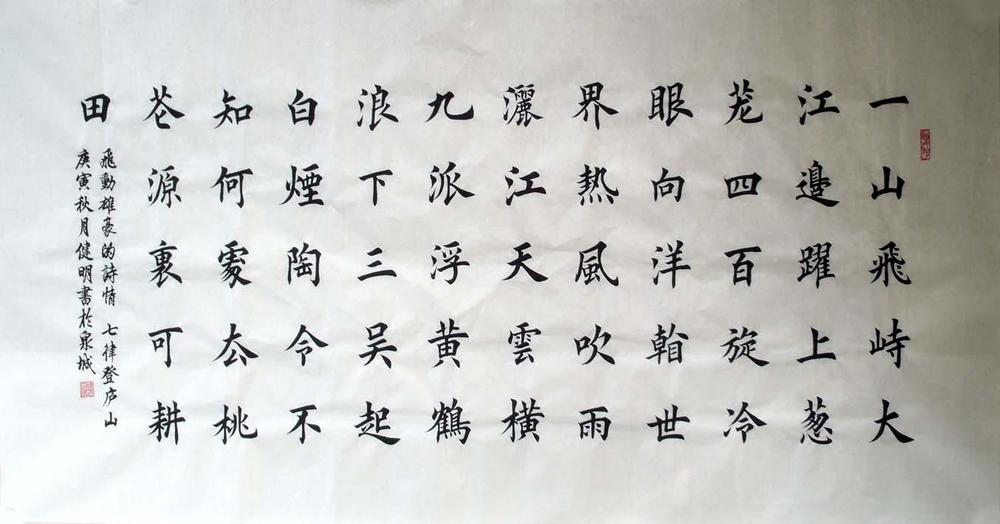 一山飛峙大
江邊躍上葱
茏四百旋冷
眼向洋看世
界热風吹雨
灑江天雲橫
九派浮黄鶴
浪下三吴起
白煙陶令不
知何處去桃
花源裏可耕
田
飛動雄豪的詩情 七律登庐山
庚寅秋月健明書於泉城